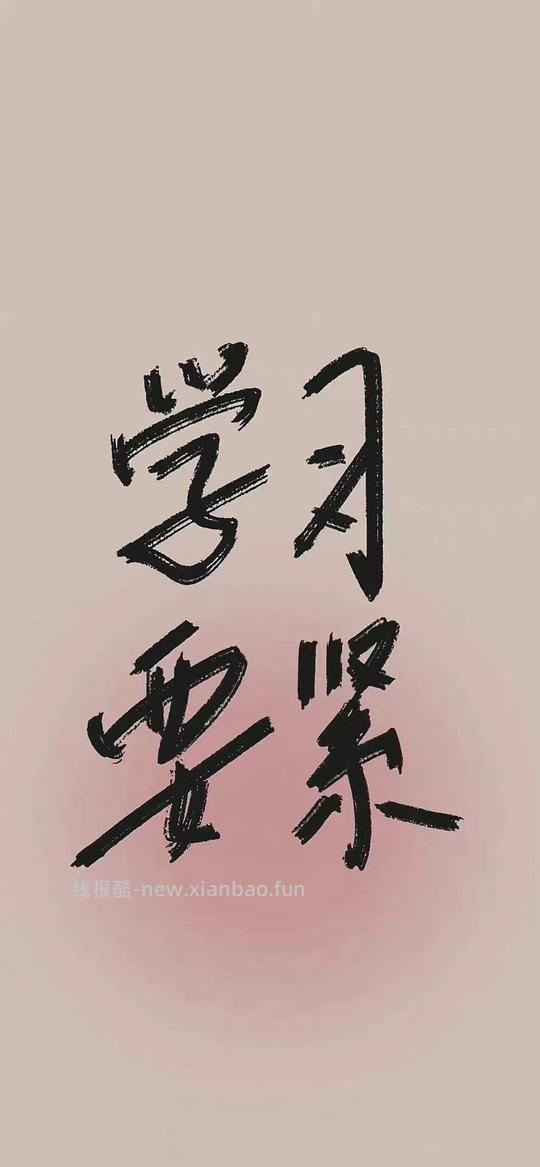 学习
要紧
线报酷-new.xianbao.fun